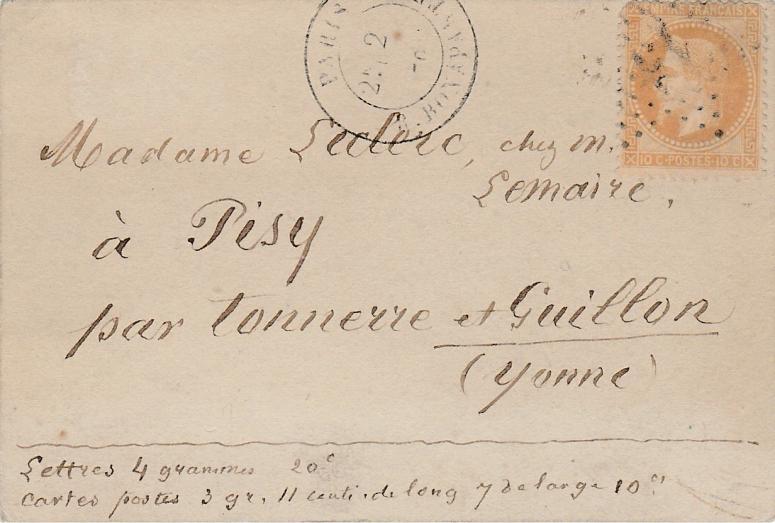 PARIS R. BONAPARTE
2
EMPIRE FRANÇAIS
10 C. POSTES 10 C.
Madame Leclerc, chez m.
Lemaire.
à Pisy
par Tonnerre et Guillon
(Yonne)
Lettres 4 grammes 20c
cartes postes 3 gr. 11 centi. de long 7 de large 10c